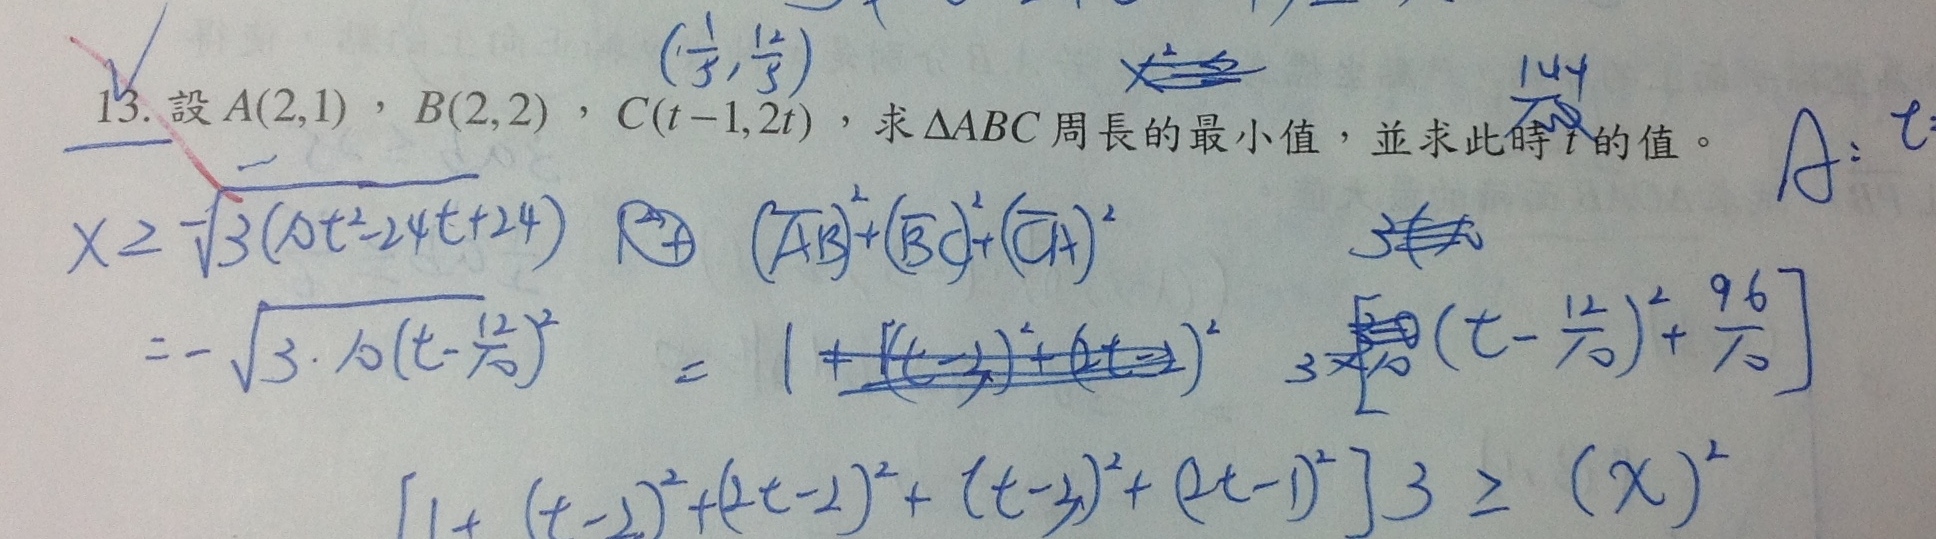 (1/5, 12/5)
144
13. 設 A(2,1)，B(2,2)，C(t−1,2t)，求 ΔABC 周長的最小值，並求此時 t 的值。
A: t=
x ≥ −√3(10t²−24t+24)
(AB)²+(BC)²+(CA)²
= −√3·10(t−12/10)²
= 1 + [(t−3)²+(2t−2)²
3×10 [(t−12/10)²+96/10]
[1+(t−3)²+(2t−2)²+(t−3)²+(2t−1)²]3 ≥ (x)²